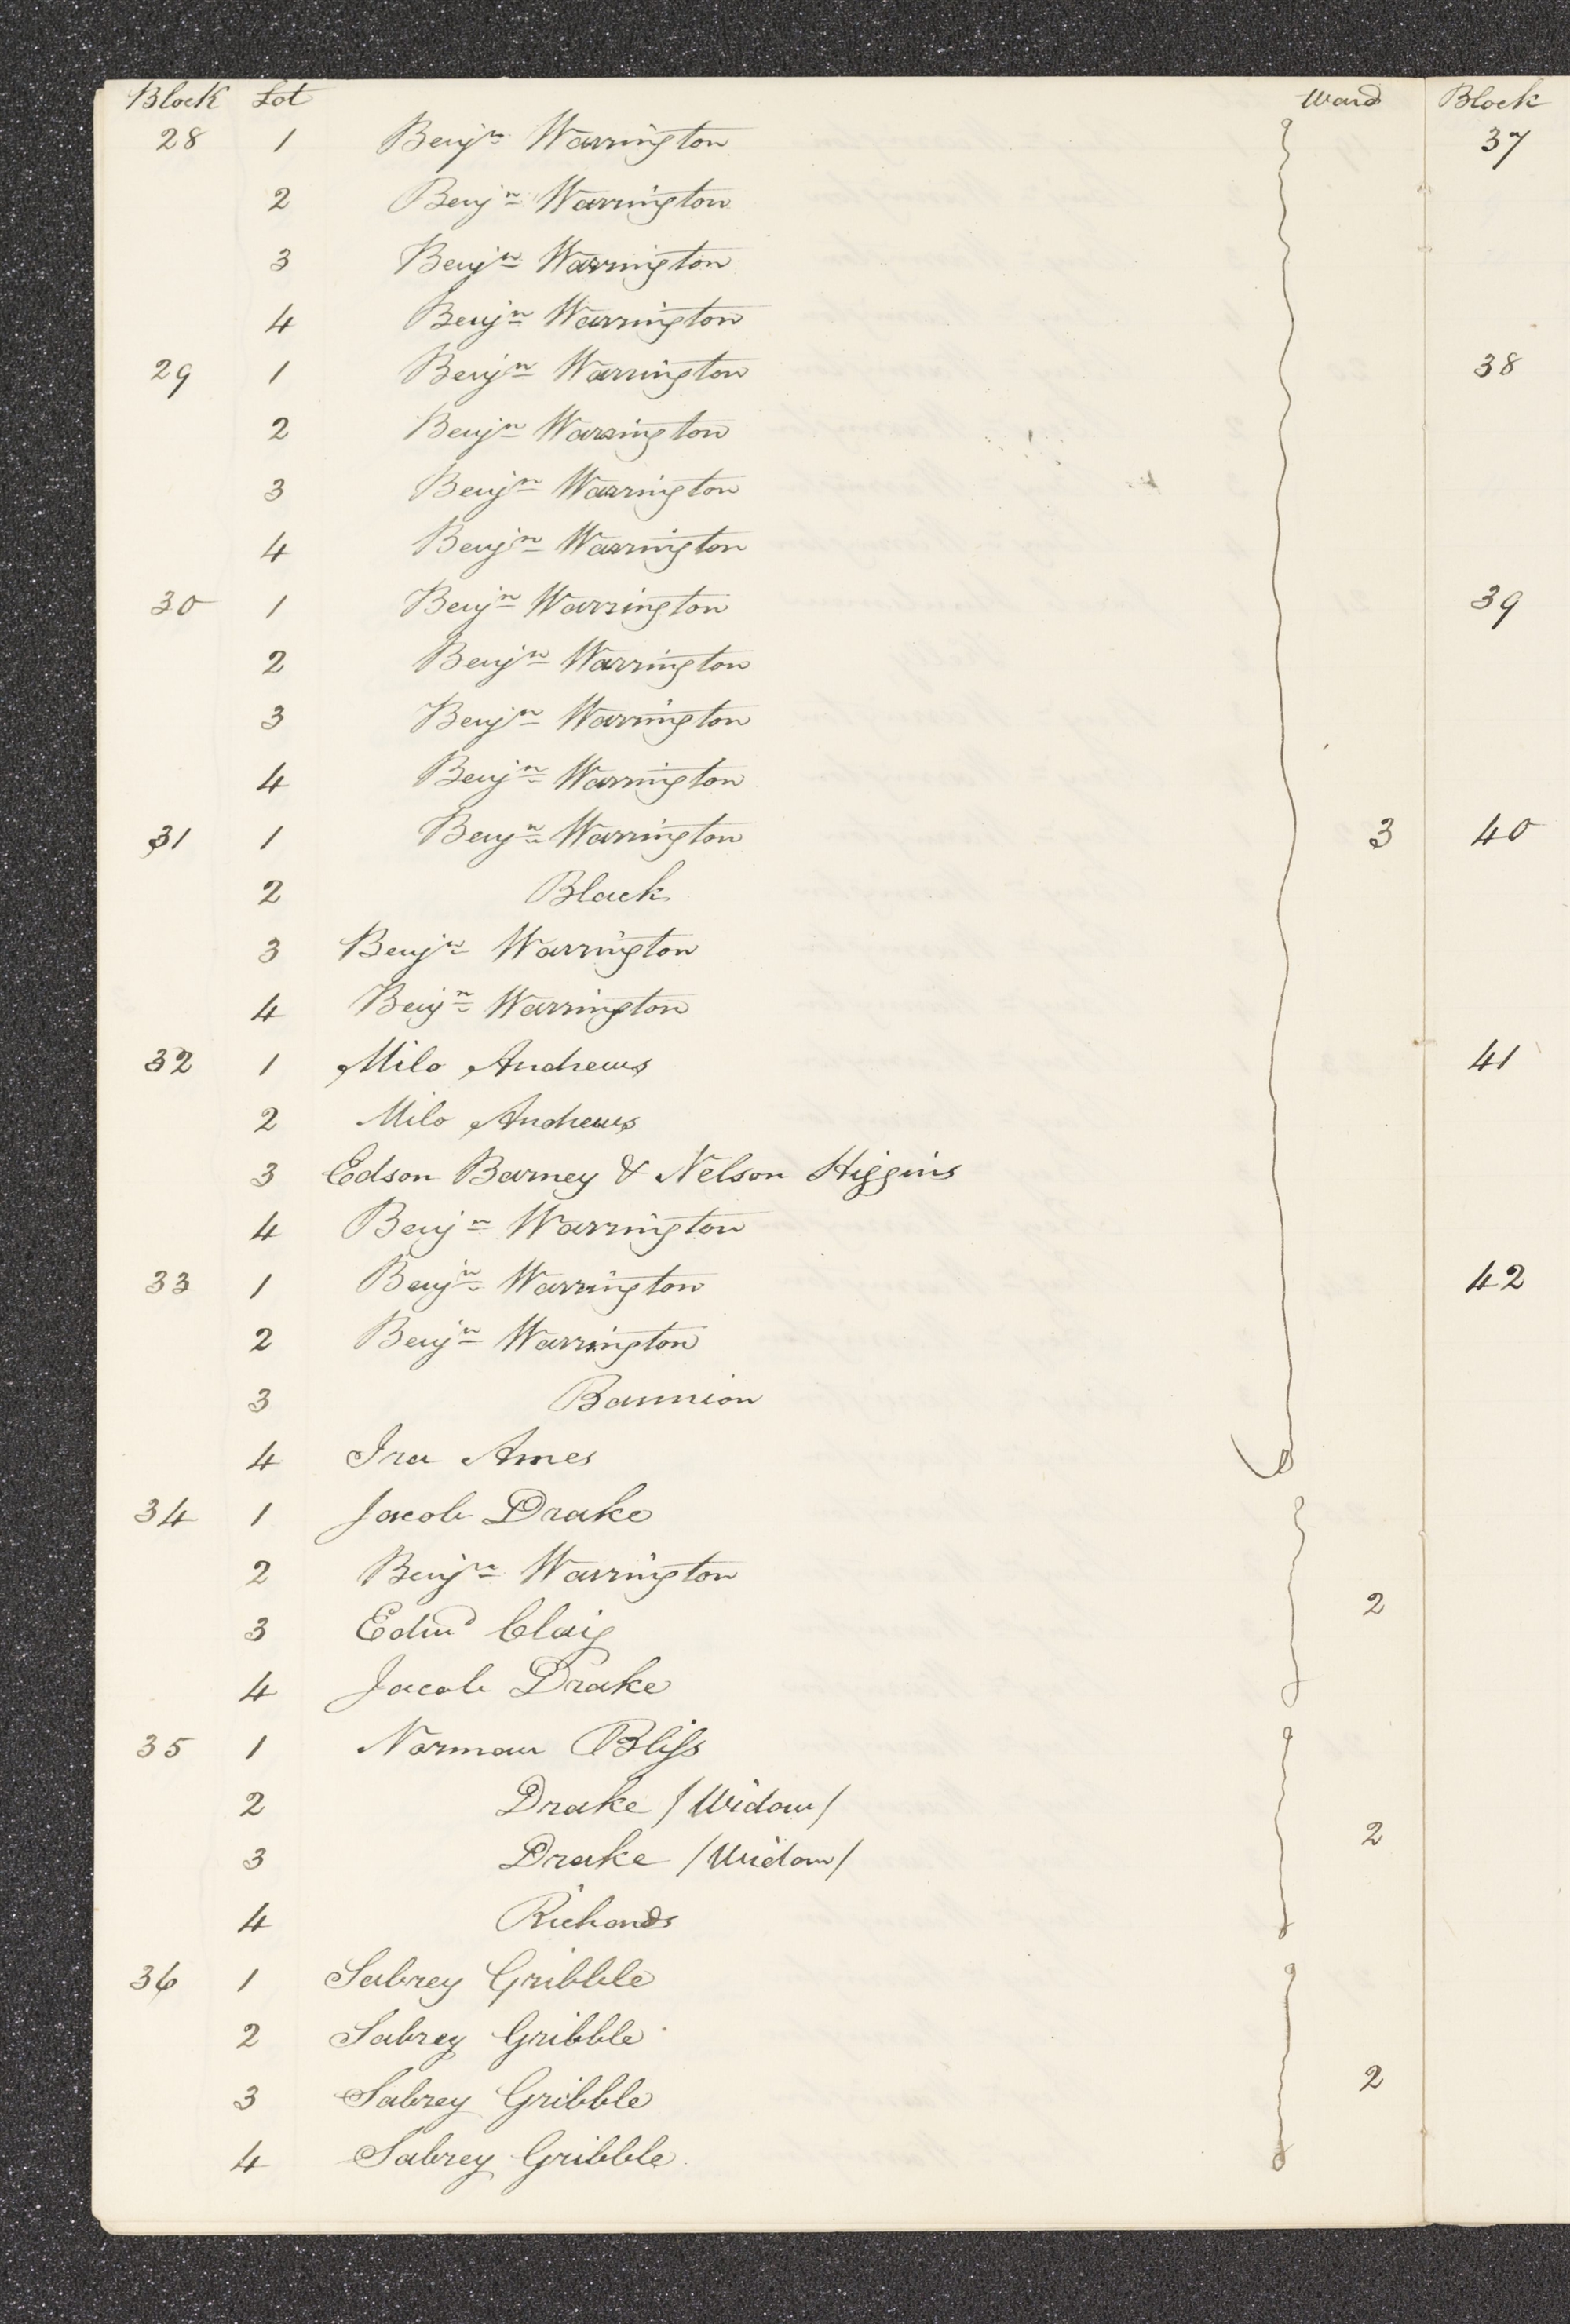 Block Lot Ward
28 1 Benjn Warrington
2 Benjn Warrington
3 Benjn Warrington
4 Benjn Warrington
29 1 Benjn Warrington
2 Benjn Warrington
3 Benjn Warrington
4 Benjn Warrington
30 1 Benjn Warrington
2 Benjn Warrington
3 Benjn Warrington
4 Benjn Warrington
31 1 Benjn Warrington 3
2 Black
3 Benjn Warrington
4 Benjn Warrington
32 1 Milo Andrews
2 Milo Andrews
3 Edson Barney & Nelson Higgins
4 Benjn Warrington
33 1 Benjn Warrington
2 Benjn Warrington
3 Bannion
4 Ira Ames
34 1 Jacob Drake
2 Benjn Warrington
2
3 Edmd Claig
4 Jacob Drake
35 1 Norman Bliss
2 Drake /Widow/
2
3 Drake /Widow/
4 Richards
36 1 Sabrey Gribble
2 Sabrey Gribble
3 Sabrey Gribble 2
4 Sabrey Gribble
Block
37
38
39
40
41
42